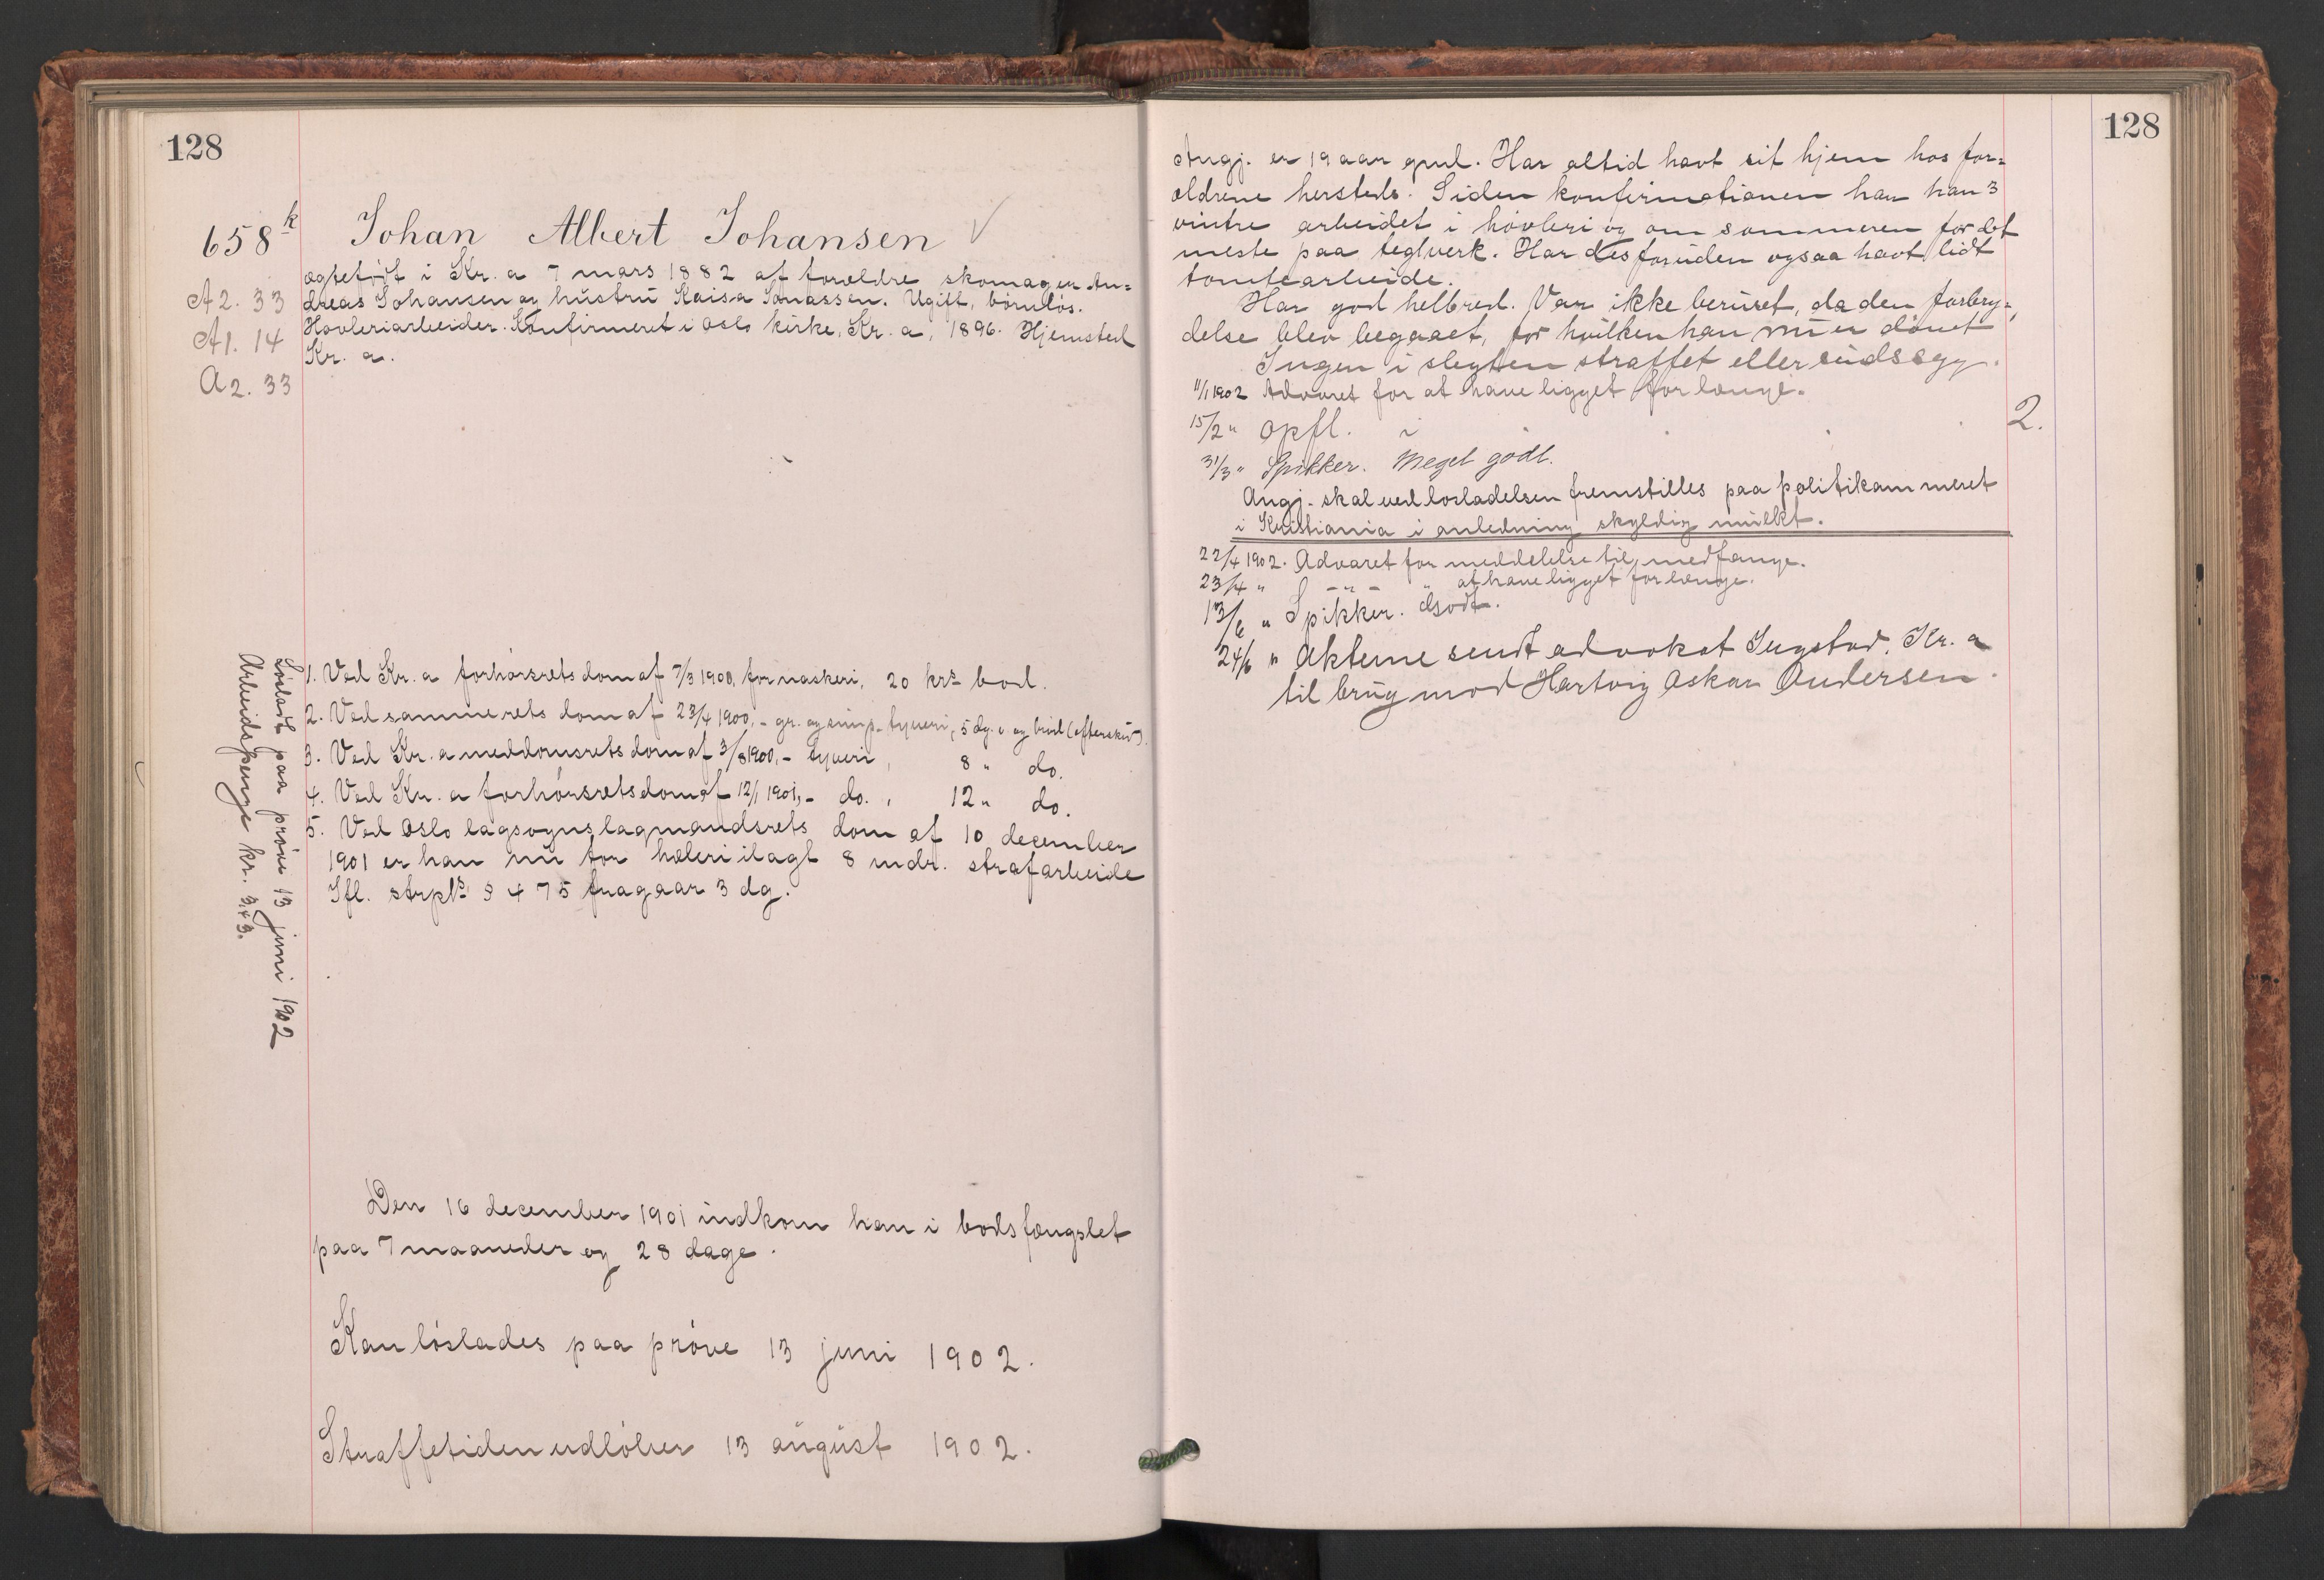 128
658 k
Johan Albert Johansen ✓
A2. 33
A1. 14
A2. 33
ægtefødt i Kr.a 7 mars 1882 af forældre skomager An=
dreas Johansen og hustru Kaisa Jonassen. Ugift, børnløs.
Høvleriarbeider. Konfirmeret i Oslo kirke, Kr.a, 1896. Hjemsted
Kr.a.
1. Ved Kr.a forhørsrets dom af 7/3 1900, for naskeri, 20 krs bod.
2. Ved samme rets dom af 23/4 1900, - gr. og simp. tyveri, 5 dg. v og brød (eftersk.)
3. Ved Kr.a meddomsrets dom af 3/8 1900, - tyveri, 8 " do.
4. Ved Kr.a forhørsrets dom af 12/1 1901, - do., 12 " do.
5. Ved Oslo lagsogns lagmandsrets dom af 10 december
1901 er han nu for hæleri ilagt 8 mdr. strafarbeide
Ifl. strpls § 475 fragaar 3 dg.
Løsladt paa prøve 13 juni 1902
Arbeidspenge kr. 3,43.
Den 16 december 1901 indkom han i bodsfængslet
paa 7 maaneder og 28 dage.
Kan løslades paa prøve 13 juni 1902.
Straffetiden udløber 13 august 1902.
128
Angj. er 19 aar gml. Har altid havt sit hjem hos for=
ældrene hersteds. Siden konfirmationen har han 3
vintre arbeidet i høvleri og om sommeren for det
meste paa teglverk. Har desforuden ogsaa havt lidt
tomtearbeide.
Har god helbred. Var ikke beruset, da den forbry=
delse blev begaaet, for hvilken han nu er dømt
Ingen i slegten straffet eller sindssyg.
11/1 1902 Advaret for at have ligget for længe.
15/2 " Opfl. i 2.
31/3 " Spikker. Meget godt.
Angj. skal ved løsladelsen fremstilles paa politikammeret
i Kristiania i anledning skyldig mulkt.
22/4 1902. Advaret for meddelelse til medfange.
23/4 " - " - " at have ligget for længe.
13/6 " Spikker. Godt.
24/6 " Akterne sendt advokat Ingstad, Kr.a
til brug mod Hartvig Oskar Andersen.